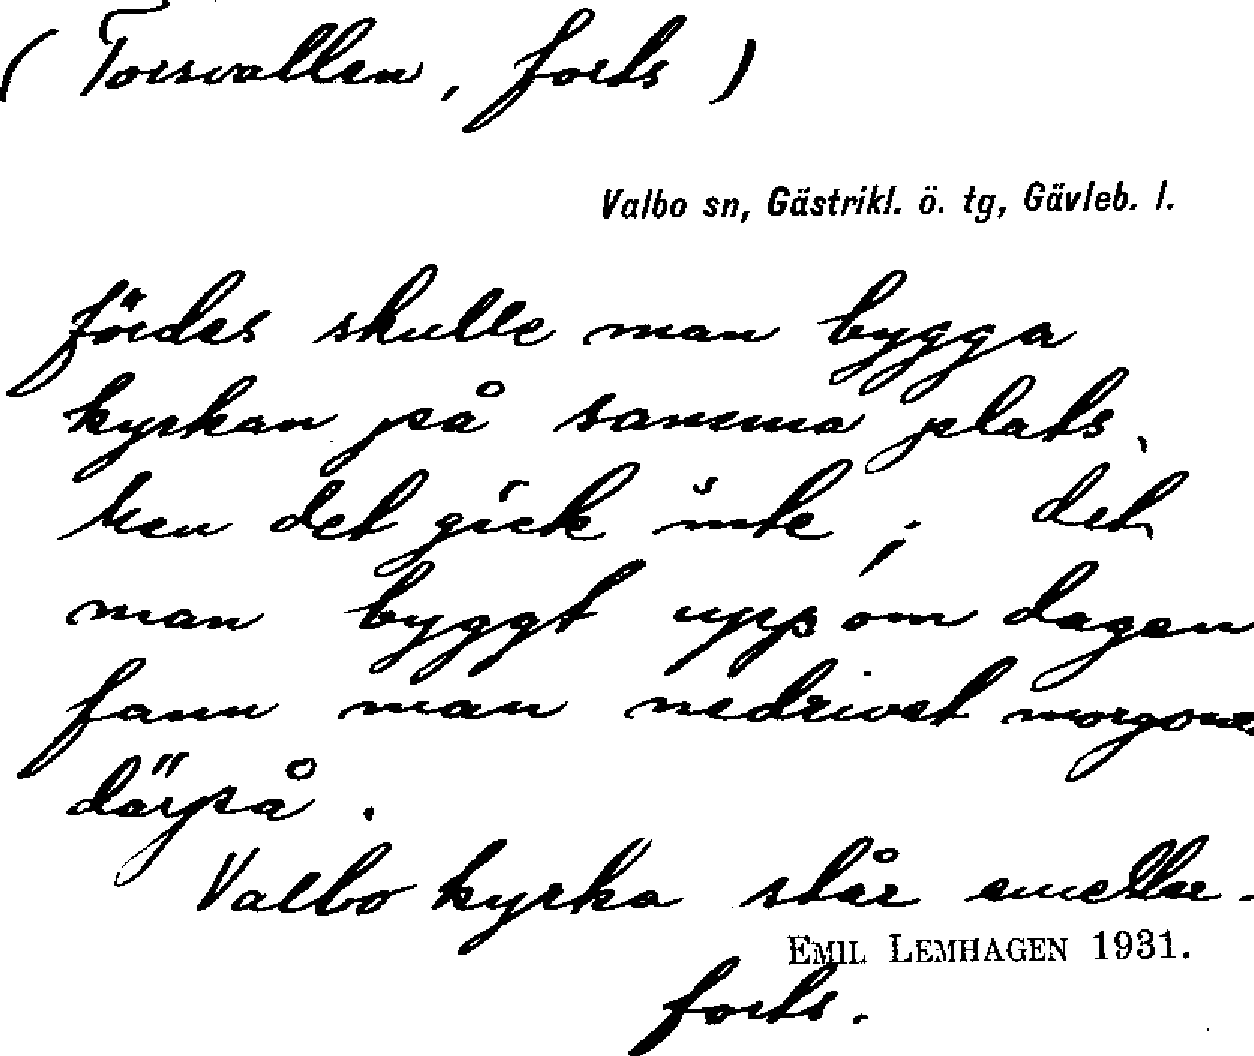 ( Torsvallen, forts )
Valbo sn, Gästrikl. ö. tg, Gävleb. l.
fördes skulle man bygga
kyrkan på samma plats.
Men det gick inte; det
man byggt upp om dagen
fann man nedrivet morgonen
därpå.
Valbo kyrka står emeller-
EMIL LEMHAGEN 1931.
forts.